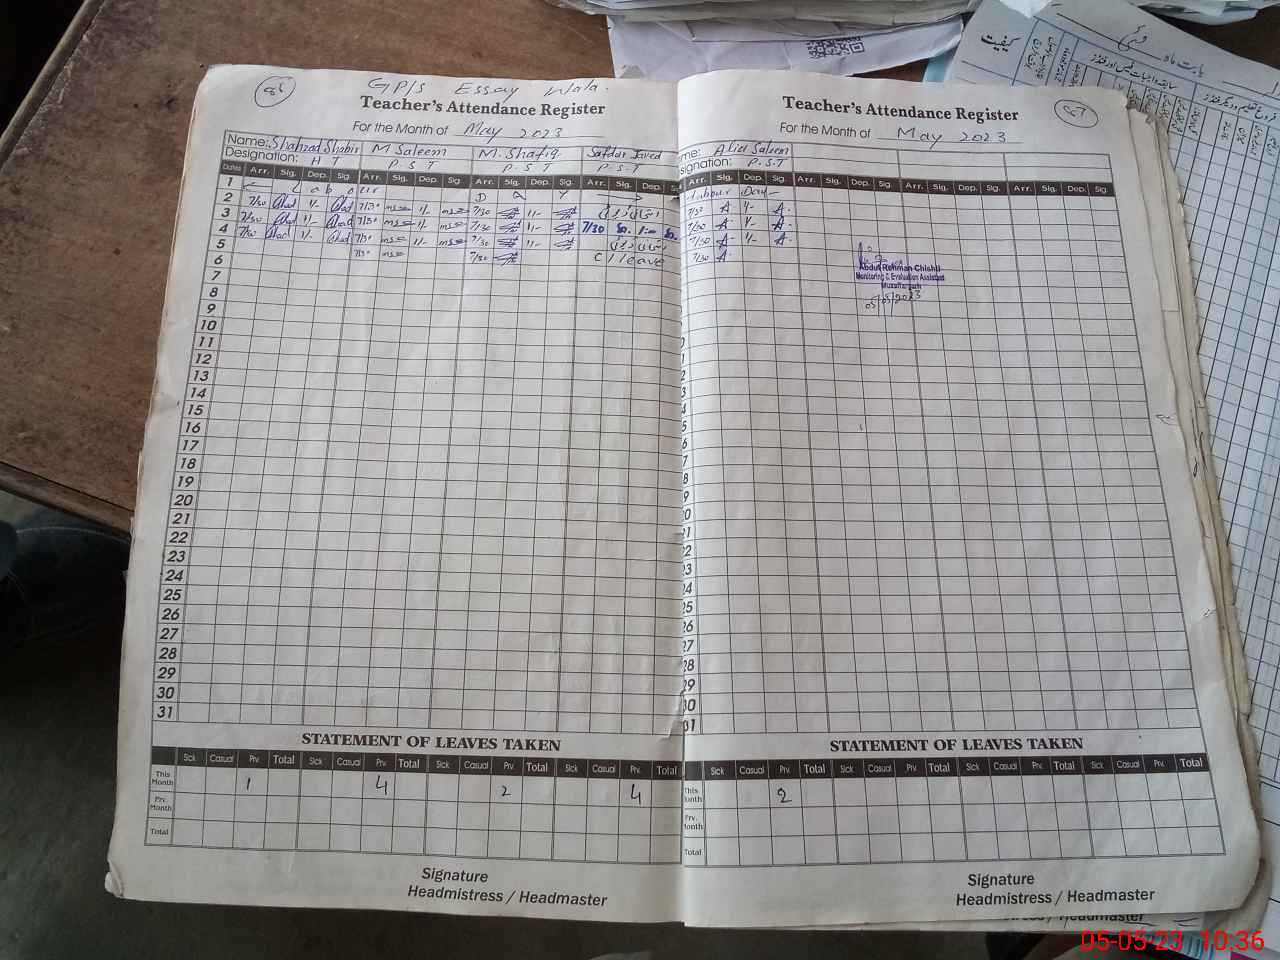 86
GP/s Essay Wala.
Teacher's Attendance Register
For the Month of May 2023
Name: Shahzad Shabir M Saleem M. Shafiq Safdar Javed
Designation: H T P. S. T P. S. T P. S. T
Dates Arr. Sig. Dep. Sig. Arr. Sig. Dep. Sig. Arr. Sig. Dep. Sig. Arr. Sig. Dep.
1 L a b o u r D A Y
2 7/30 1/- 7/30 1/- 7/30 1/-
3 7/30 1/- 7/30 1/- 7/30 1/- 7/30 1:-
4 7/30 1/- 7/30 1/- 7/30 1/-
5 7/30 7/30 C / leave
6
7
8
9
10
11
12
13
14
15
16
17
18
19
20
21
22
23
24
25
26
27
28
29
30
31
STATEMENT OF LEAVES TAKEN
Sick Casual Prv. Total Sick Casual Prv. Total Sick Casual Prv. Total Sick Casual Prv. Total
This Month 1 4 2 4
Prv. Month
Total
Signature
Headmistress / Headmaster
87
Teacher's Attendance Register
For the Month of May 2023
me: Saleem
signation: P. S. T
Arr. Sig. Dep. Sig. Arr. Sig. Dep. Sig. Arr. Sig. Dep. Sig. Arr. Sig. Dep. Sig.
Labour Day
7/30 A 1/- A
7/30 A 1/- A
7/30 A 1/- A
7/30 A
Abdul Rehman Chishti
Monitoring & Evaluation Assistant
Muzaffargarh
05/05/2023
STATEMENT OF LEAVES TAKEN
Sick Casual Prv. Total Sick Casual Prv. Total Sick Casual Prv. Total Sick Casual Prv. Total
This onth 2
Prv. onth
Total
Signature
Headmistress / Headmaster
ress / Headmaster
کیفیت
بابت ماہ
05-05-23 10:36